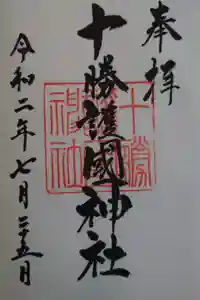 奉拝
十勝護國神社
十勝神社
令和二年七月二十五日